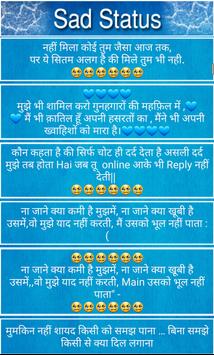 Sad Status
नहीं मिला कोई तुम जैसा आज तक,
पर ये सितम अलग है की मिले तुम भी नही.
🥺🥺🥺🥺🥺
💙💙💙💙💙
मुझे भी शामिल करो गुनहगारों की महफ़िल में 💙
💙 मैं भी क़ातिल हूँ अपनी हसरतों का , मैंने भी अपनी
ख्वाहिशों को मारा है।💙💙💙💙💙
कौन कहता है की सिर्फ चोट ही दर्द देता है असली दर्द
मुझे तब होता Hai जब तू online आके भी Reply नहीं
देती||
🥺🥺🥺🥺🥺
ना जाने क्या कमी है मुझमें, ना जाने क्या खूबी है
उसमें,वो मुझे याद नहीं करती, मैं उसको भूल नहीं पाता :
(
ना जाने क्या कमी है मुझमें, ना जाने क्या खूबी है
उसमें,,वो मुझे याद नहीं करती, Main उसको भूल नहीं
पाता" -
🥺🥺🥺🥺🥺
मुमकिन नहीं शायद किसी को समझ पाना ... बिना समझे
किसी से क्या दिल लगाना